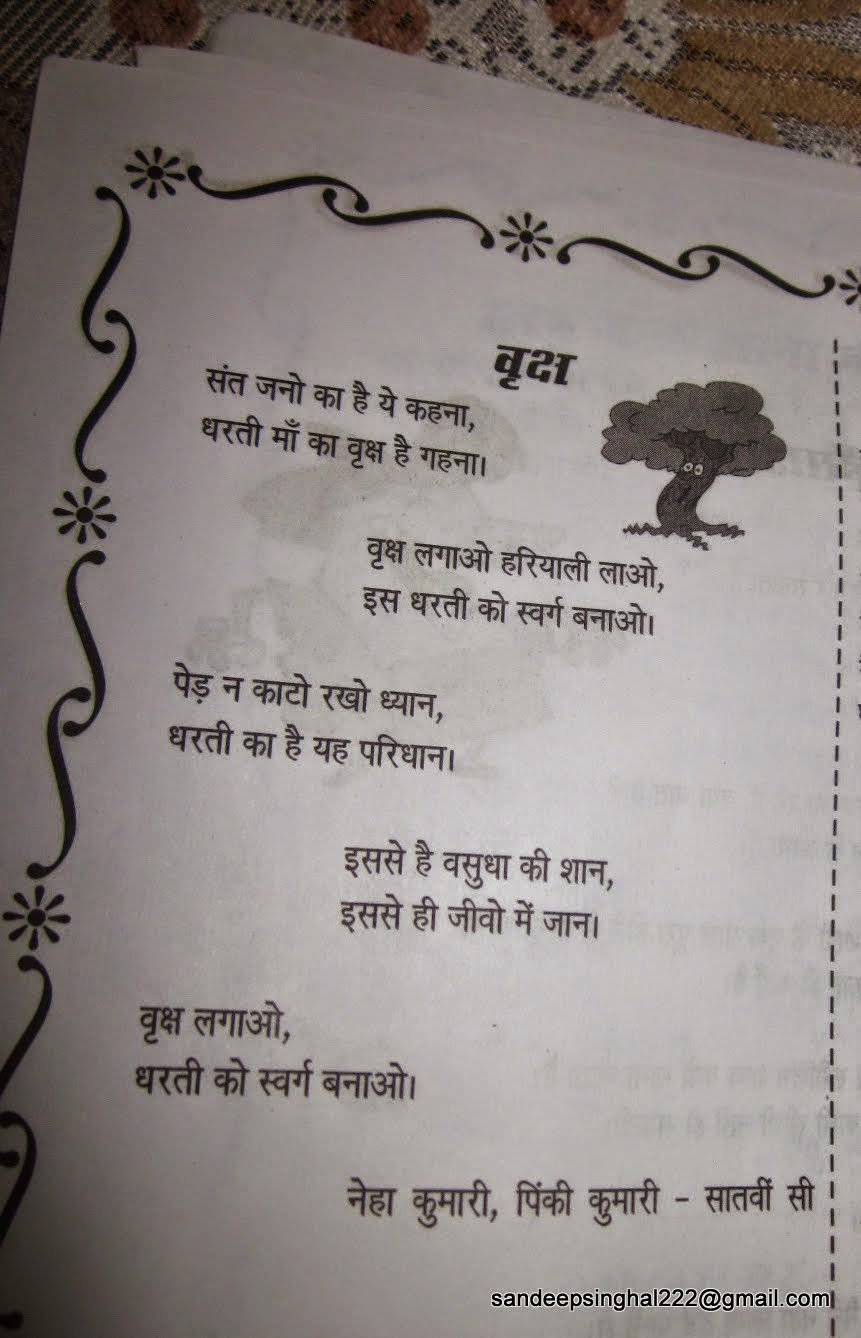 वृक्ष
संत जनो का है ये कहना,
धरती माँ का वृक्ष है गहना।
वृक्ष लगाओ हरियाली लाओ,
इस धरती को स्वर्ग बनाओ।
पेड़ न काटो रखो ध्यान,
धरती का है यह परिधान।
इससे है वसुधा की शान,
इससे ही जीवो में जान।
वृक्ष लगाओ,
धरती को स्वर्ग बनाओ।
नेहा कुमारी, पिंकी कुमारी - सातवीं सी
sandeepsinghal222@gmail.com